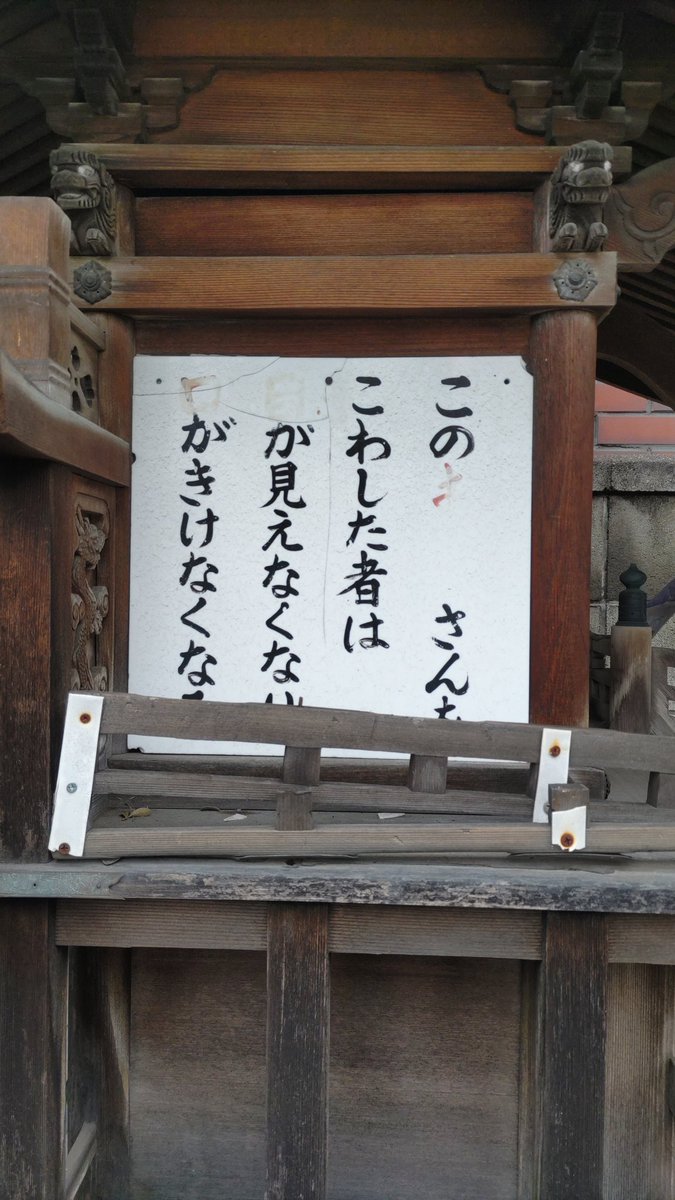 この さんを
こわした者は
目が見えなくなり
口がきけなくなる